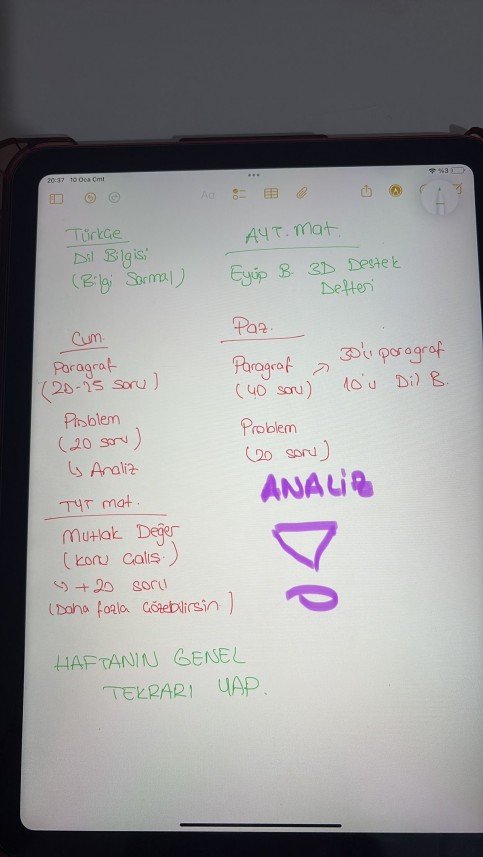 20:37 10 Oca Cmt
%3
Aa
Türkçe
Dil Bilgisi
(Bilgi Sarmal)
AYT. Mat.
Eyüp B. 3D Destek
Defteri
Cum.
Paragraf
(20-25 soru)
Problem
(20 soru)
↳ Analiz
TYT mat.
Mutlak Değer
(Konu Çalış.)
↳ +20 soru
(Daha fazla çözebilirsin.)
Paz.
Paragraf → 30'u paragraf
(40 soru) 10'u Dil B.
Problem
(20 soru)
ANALİZ
HAFTANIN GENEL
TEKRARI YAP.